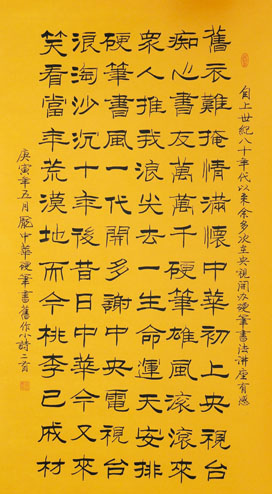 自上世紀八十年代以來余多次至央視開办硬筆書法講座有感
舊衣難掩情滿懷中華初上央視台
痴心書友萬萬千硬筆雄風滾滾來
衆人推我浪尖去一生命運天安排
硬筆書風一代開多謝中央電視台
浪淘沙沉十年後昔日中華今又來
笑看當年荒漠地而今桃李已成材
庚寅年五月龐中華硬筆書舊作小詩二首